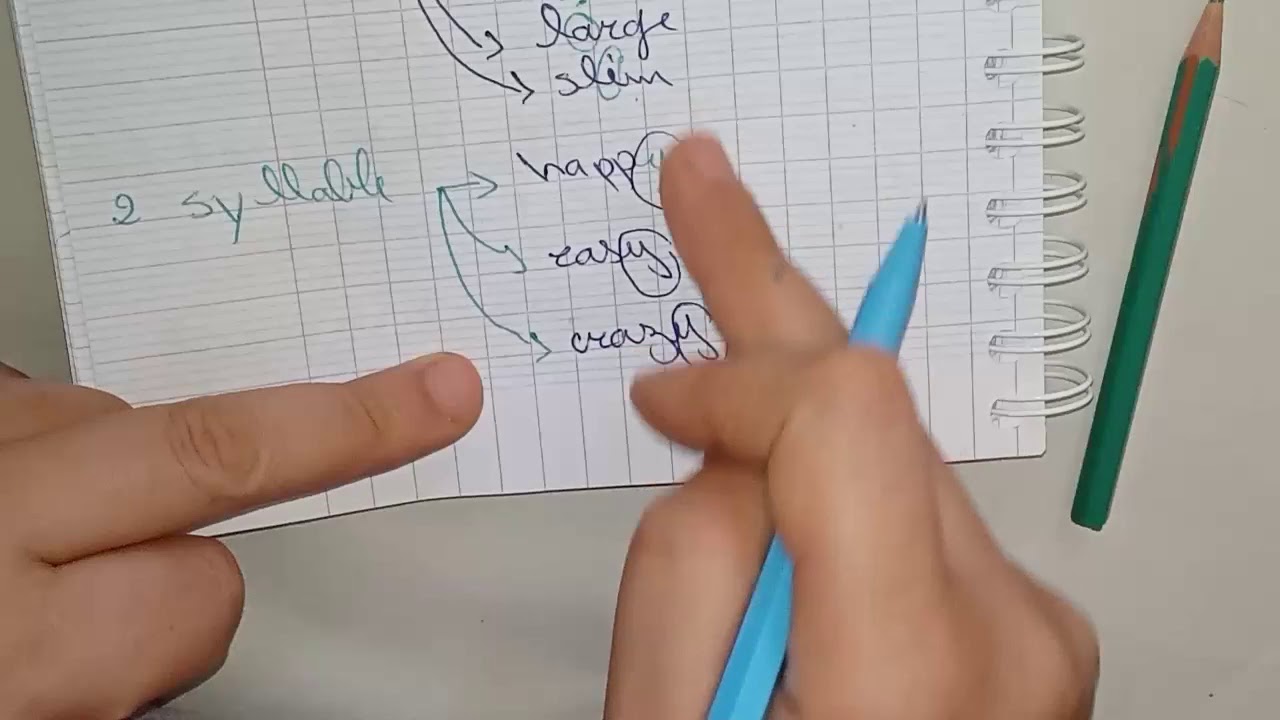 large
slim
2 syllable
happy
easy
crazy